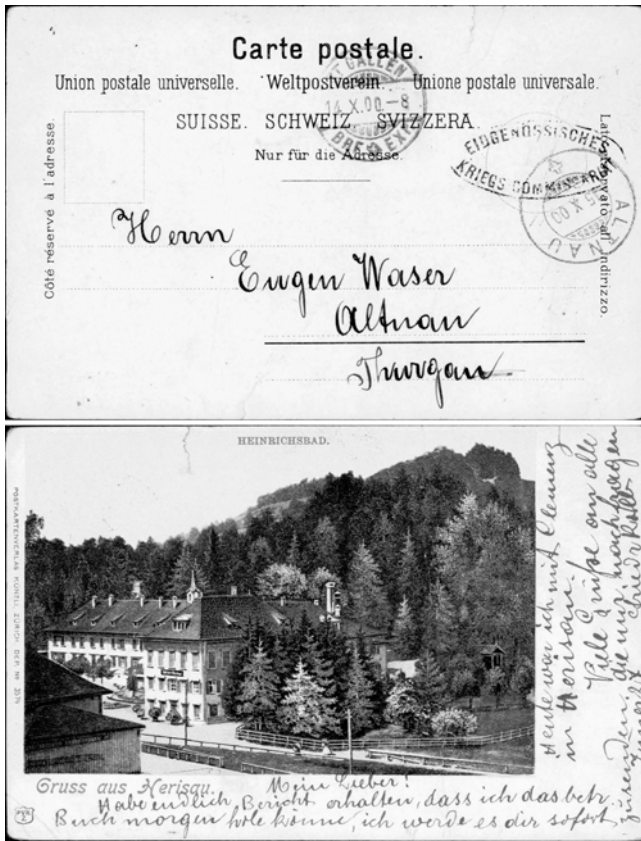 Carte postale.
Union postale universelle. Weltpostverein. Unione postale universale.
SUISSE. SCHWEIZ. SVIZZERA.
Nur für die Adresse.
Côté réservé à l'adresse.
Lato riservato all'indirizzo.
ST. GALLEN
14.X.00.-8
BRF. EXP.
EIDGENÖSSISCHES
KRIEGS COMMISSARIAT
ALTNAU
X.00
Herrn
Eugen Waser
Altnau
Thurgau
HEINRICHSBAD.
POSTKARTENVERLAG KÜNZLI, ZÜRICH DEP. Nr.
Gruss aus Herisau.
Mein Lieber!
Habe endlich, Bericht erhalten, dass ich das betr.
Buch morgen hole könne, ich werde es dir sofort
zusenden,
Heute war ich mit Clemenz
in Herisau.
Viele Grüße an alle
die mir nachfragen